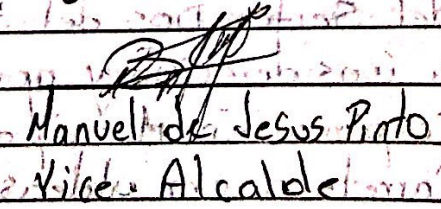 Manuel de Jesus Pinto
Vice-Alcalde